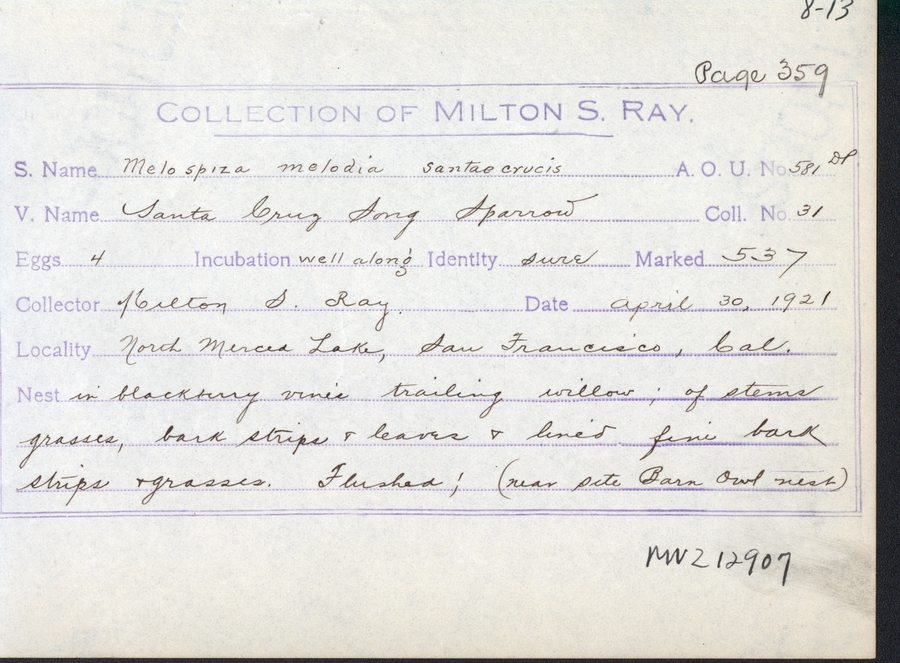 8-13
Page 359
COLLECTION OF MILTON S. RAY.
S. Name Melospiza melodia santaecrucis A. O. U. No. 581
V. Name Santa Cruz Song Sparrow Coll. No. 31
Eggs 4 Incubation well along Identity sure Marked 537
Collector Milton S. Ray. Date April 30, 1921
Locality North Merced Lake, San Francisco, Cal.
Nest in blackberry vines trailing willow; of stems
grasses, bark strips & leaves & lined fine bark
strips & grasses. Flushed! (near site Barn Owl nest)
MVZ 12907